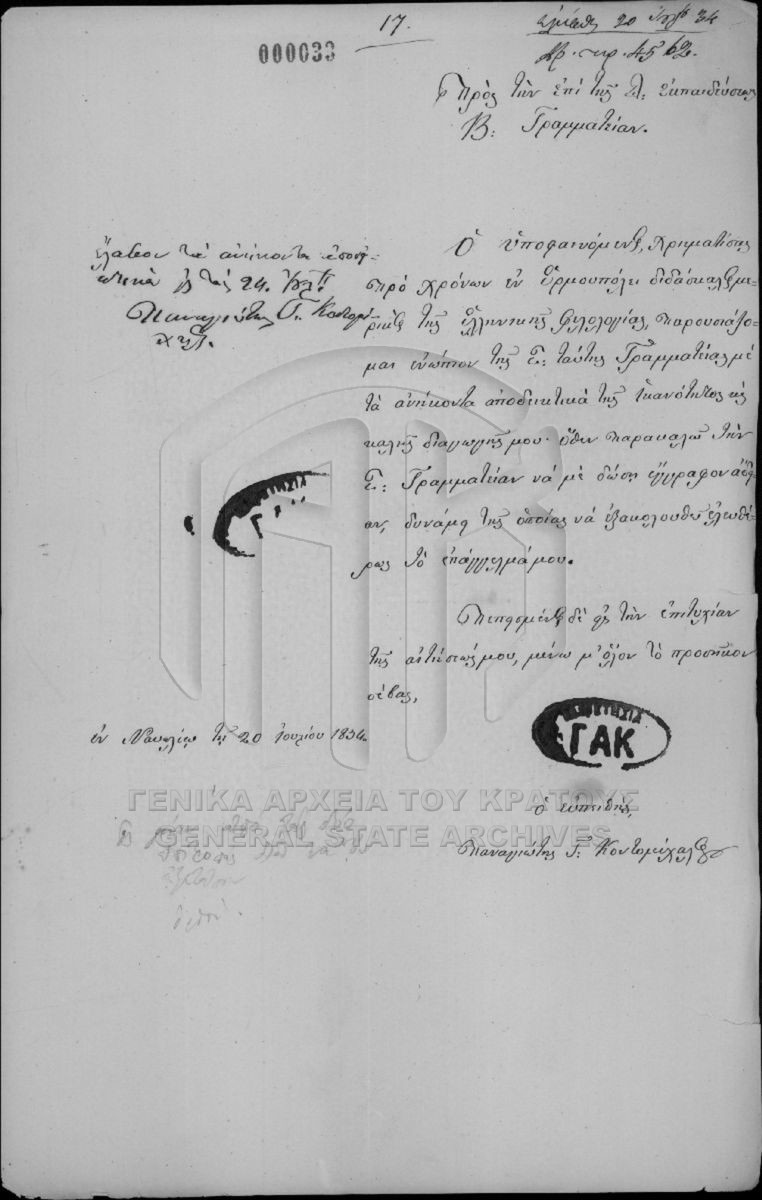 17.
000033
ἐλήφθη 20 Ἰουλ. 34
Ἀρ. πρ. 4562.
Πρὸς τὴν ἐπὶ τῆς Ἐκ: ἐκπαιδεύσεως
Β: Γραμματείαν.
Ἔλαβον τὰ ἀνήκοντα
τὰς 24. Ἰουλ.
Παναγιώτης Γ. Κοντομί
χαλος.
Ὁ ὑποφαινόμενος, χρηματίσας
πρὸ χρόνων ἐν Ἑρμουπόλει διδάσκαλος με-
ρικὸς τῆς Ἑλληνικῆς Φιλολογίας, παρουσιάζο-
μαι ἐνώπιον τῆς Σ: ταύτης Γραμματείας μὲ
τὰ ἀνήκοντα ἀποδεικτικὰ τῆς ἱκανότητος καὶ
καλῆς διαγωγῆς μου· ὅθεν παρακαλῶ τὴν
Σ: Γραμματείαν νὰ μὲ δώσῃ ἔγγραφον ἄδει-
αν, δυνάμει τῆς ὁποίας νὰ ἐξακολουθῶ ἐλευθέ-
ρως τὸ ἐπάγγελμά μου.
Πεπεισμένος δὲ εἰς τὴν ἐπιτυχίαν
τῆς αἰτήσεώς μου, μένω μ' ὅλον τὸ προσῆκον
σέβας,
ἐν Ναυπλίῳ τῇ 20 Ἰουλίου 1834.
ΓΑΚ
ΓΕΝΙΚΑ ΑΡΧΕΙΑ ΤΟΥ ΚΡΑΤΟΥΣ
GENERAL STATE ARCHIVES
ὁ εὐπειθὴς,
Παναγιώτης Γ: Κοντομίχαλος